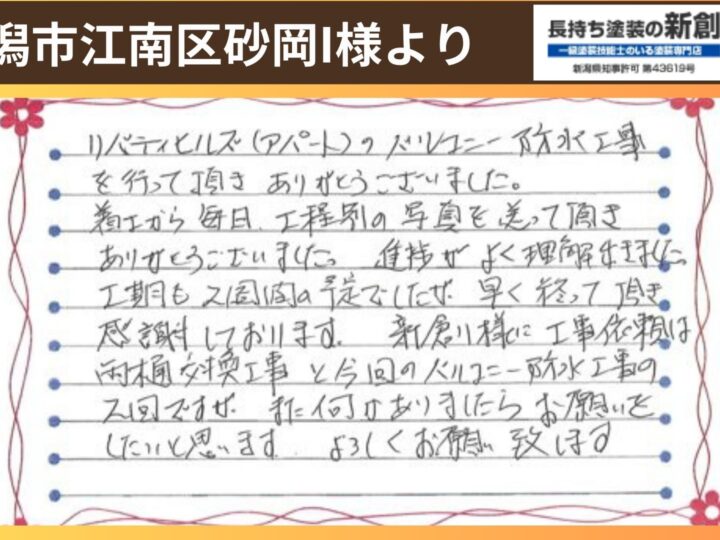 潟市江南区砂岡I様より
長持ち塗装の新創
一級塗装技能士のいる塗装専門店
新潟県知事許可 第43619号
リバティヒルズ(アパート)のバルコニー防水工事
を行って頂き ありがとうございました。
着工から毎日、工程別の写真を送って頂き
ありがとうございました。 進捗がよく理解出きました。
工期も2週間の予定でしたが、早く終って頂き
感謝しております。 新創様に工事依頼は
雨樋交換工事と今回のバルコニー防水工事の
2回ですが、また何かありましたらお願いを
したいと思います。 よろしくお願い致します